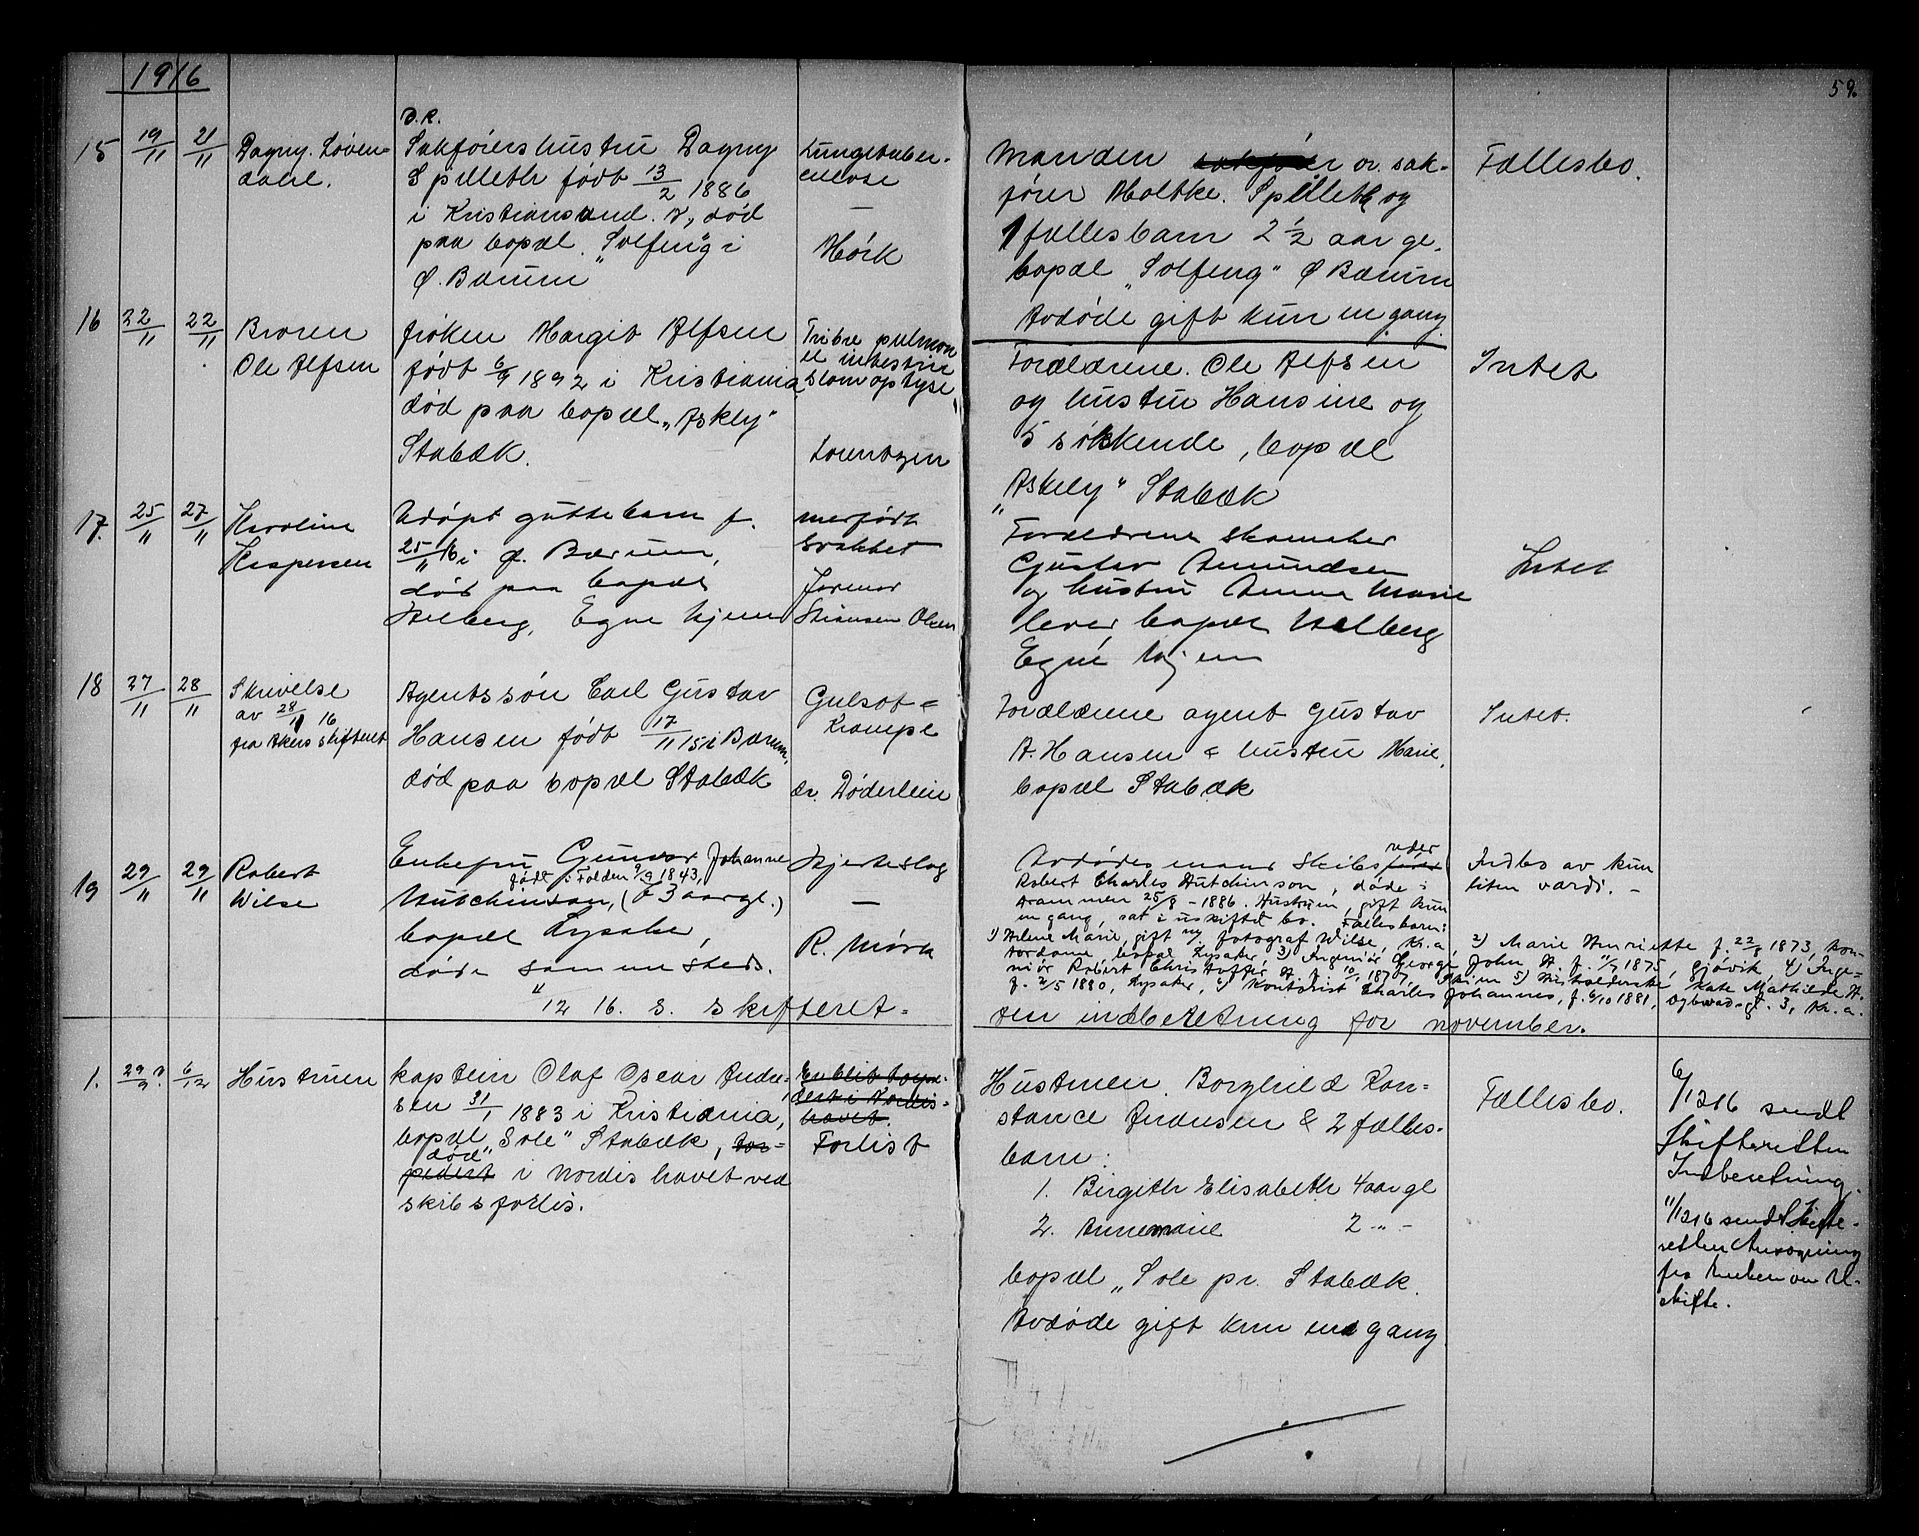 1916
59.
15 19/11 21/11 Dagny Løven-
dahl.
D.R.
Sakførershustru Dagny
Spilleth født 13/2 1886
i Kristiansund. N, død
paa bopæl "Solfeng" i
Ø. Bærum
Lungetuber-
culose
—
Mørk
Manden or. sak-
fører Moltke. Spilleth og
1 fællesbarn 2 1/2 aar ge.
bopæl "Solfeng" Ø Bærum
Avdøde gift kun en gang.
Fællesbo.
16 22/11 22/11 Broren
Ole Alfsen
frøken Margit Alfsen
født 6/9 1892 i Kristiania,
død paa bopæl "Askly"
Stabæk.
pulmon
et intestin
Lorentzen
Forældrene. Ole Alfsen
og hustru Hansine og
5 søskende, bopæl
"Askely" Stabæk
Intet
17. 25/11 27/11 Karoline
Kaspersen
Udøpt guttebarn f.
25/11 16 i Ø. Bærum,
død paa bopæl
Helberg, Egne hjem
medfødt
svakhet
Jormor
Hansen Olsen
Forældrene skomaker
Gustav Amundsen
og hustru Anna Marie
lever bopæl Helberg
Egne hjem
Intet
18 27/11 28/11 Skrivelse
av 28/11 16
fra Akers skifteret
Agentssøn Carl Gustav
Hansen født 17/11 15 i Bærum,
død paa bopæl Stabæk
Gulsot =
Krampe
dr. Døderlein
Forældrene agent Gustav
A. Hansen & hustru Marie,
bopæl Stabæk
Intet.
19 29/11 29/11 Robert
Wilse
Enkefru Gunvor Johanne
født i Folden 9/9 1843,
Hutchinson, (73 aar gl.)
bopæl Lysaker,
døde sammesteds.
Hjerteslag
—
R. Mørk
Avdødes mand Skibsreder
Robert Charles Hutchinson, døde i
Drammen 25/8 - 1886. Hustruen, gift kun
en gang, sat i uskiftet bo. Fællesbarn:
1) Helene Marie, gift m/ fotograf Wilse, Kr.a, 2) Marie Henriette f. 22/8 1873, kon-
tordame, bopæl Lysaker, 3) Ingeniør George John H. f. 11/7 1875, Gjøvik, 4) Inge-
niør Robert Christoffer H. f. 10/1 1877, Skien 5) Kate Mathilde H.
f. 2/5 1880, Lysaker, 6) Kontorist Charles Johannes, f. 6/10 1881, Kr.a.
Indbo av kun
liten værdi. -
11/12 16. s. skifteret =
den indberetning for november.
1. 29/9? 6/12 Hustruen
kaptein Olaf Oscar Andre-
sen 31/1 1883 i Kristiania,
bopæl "Sole" Stabæk, tor-
død
pedert i Nordishavet ved
skibsforlis.
En blit torpe-
dert i Nordis-
havet.
Forlist
Hustruen Borghild Kon-
stance Andresen & 2 fælles-
barn:
1. Birgith Elisabeth 4 aar gl
2. Annemarie 2 -"-
bopæl "Sole pr. Stabæk.
Avdøde gift kun en gang
Fællesbo.
6/12 16 sendt
Skifteretten
Indberetning.
11/12 16 sendt Skifte-
retten Ansøgning
fra enken om U-
skifte.